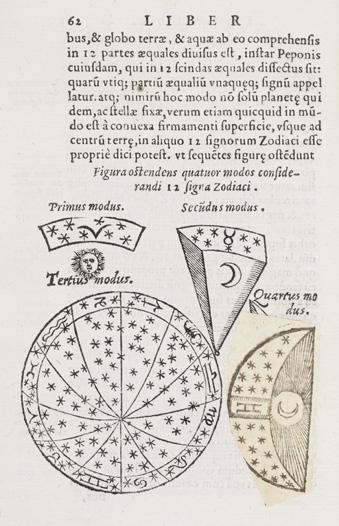 62 LIBER
bus, & globo terræ, & aquæ ab eo comprehensis
in 12 partes æquales diuisus est, instar Peponis
cuiusdam, qui in 12 scindas æquales dissectus sit:
quarũ vtiq; partiũ æqualiũ vnaquęq; signũ appel
latur. atq; nimirũ hoc modo nõ solũ planetę qui
dem, ac stellæ fixæ, verum etiam quicquid in mũ-
do est à conuexa firmamenti superficie, vsque ad
centrũ terrę, in aliquo 12 signorum Zodiaci esse
propriè dici potest. vt sequẽtes figurę ostẽdunt
Figura ostendens quatuor modos conside-
randi 12 signa Zodiaci.
Primus modus. Secũdus modus.
Tertius modus.
Quartus mo
dus.